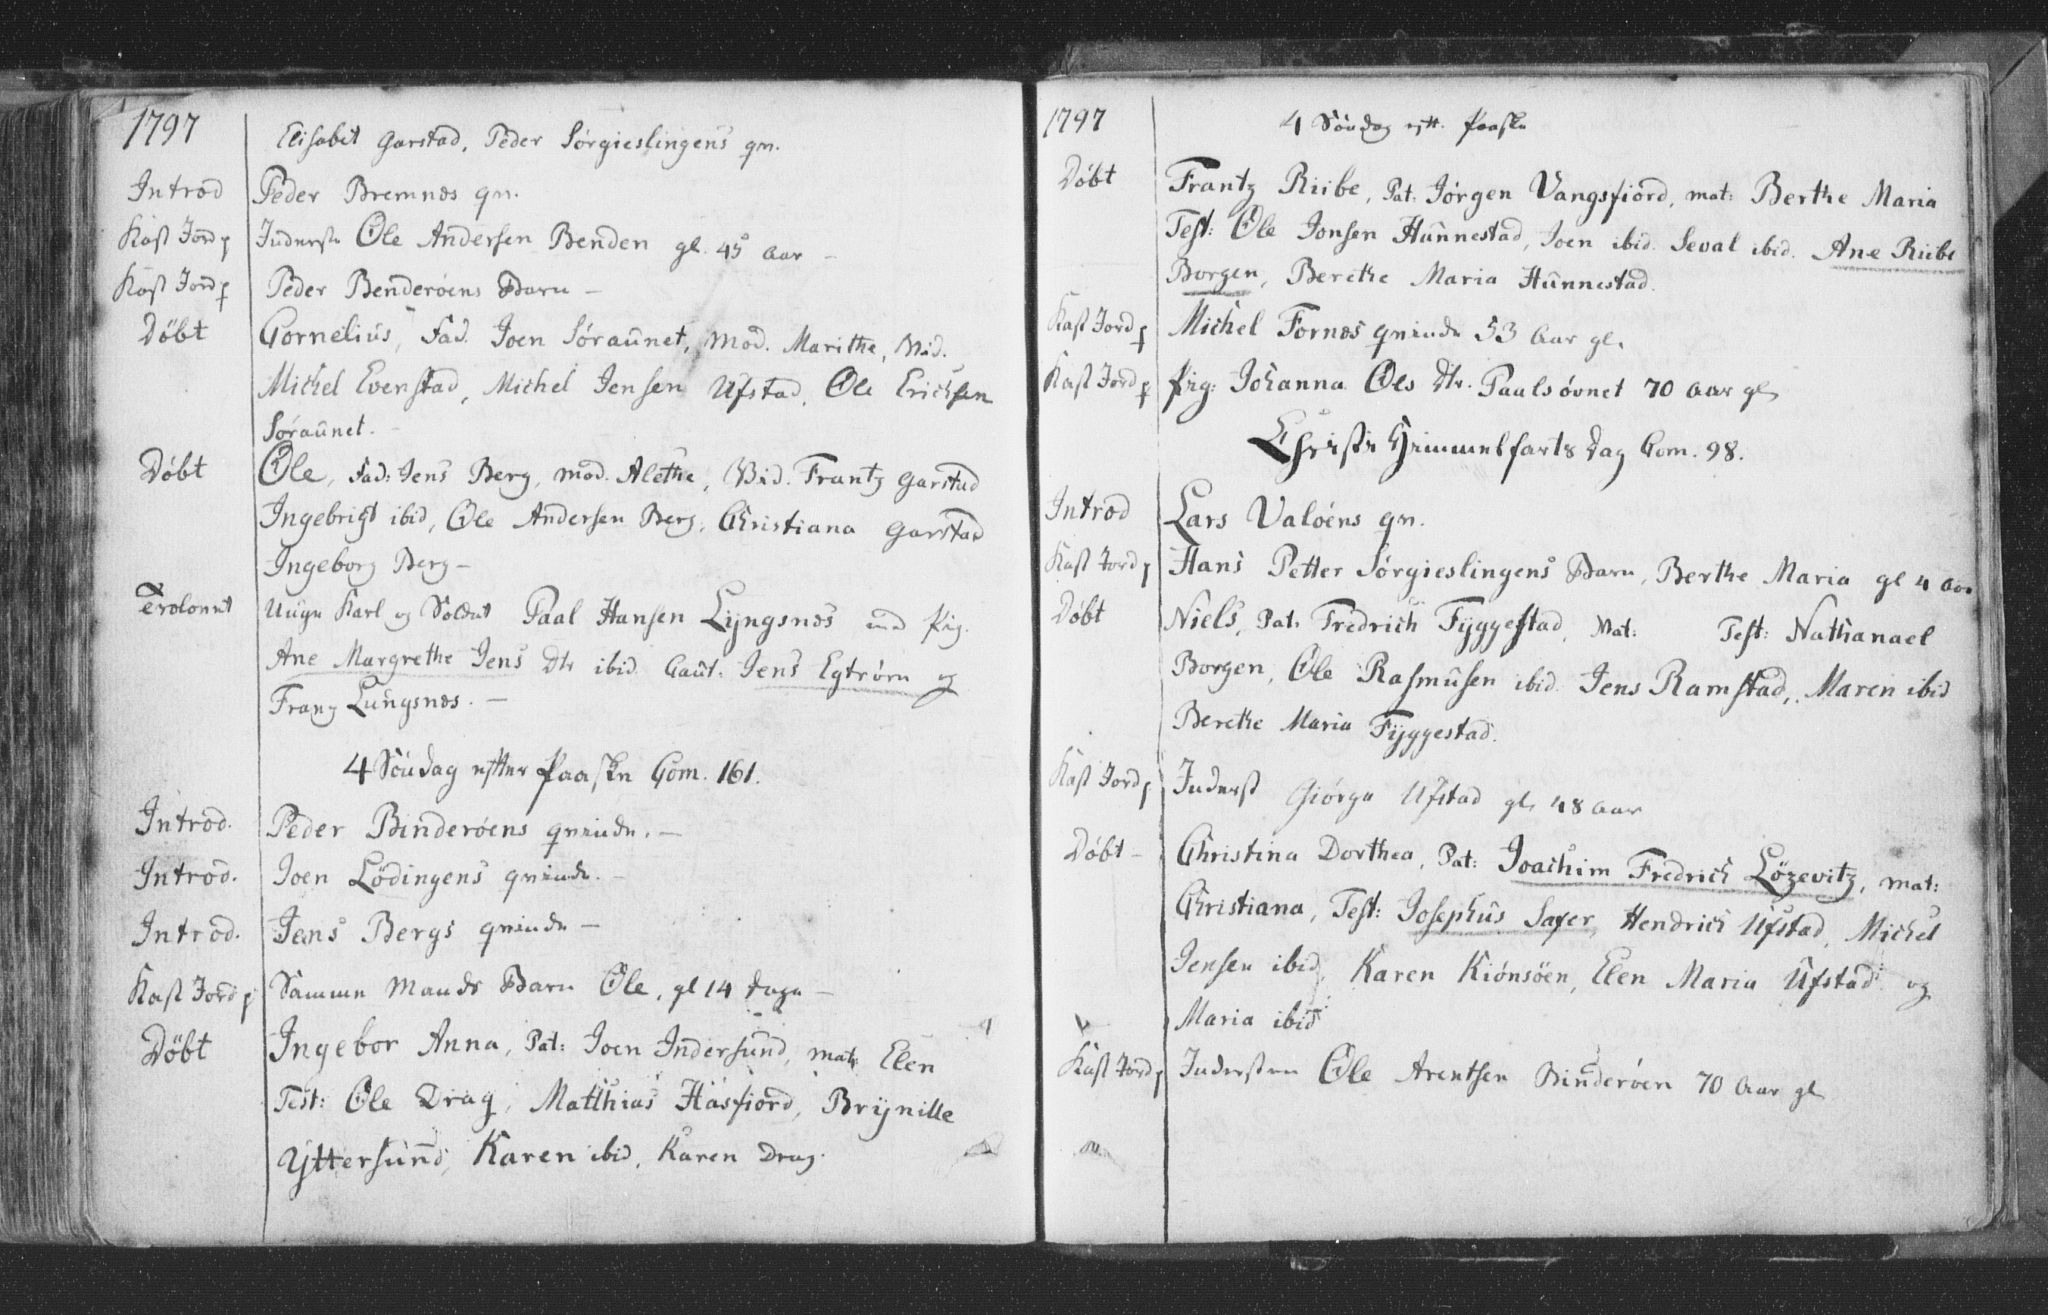 1797
Elisabet Garstad, Peder Sørgieslingens qv.
Introd Peder Bremnæs qv.
Kast Jord p Inderste Ole Andersen Benden gl. 45 Aar –
Kast Jord p Peder Benderøens Barn –
Døbt Cornelius, Fad. Joen Søraunet, Mod. Marithe, Vid.
Michel Evenstad, Michel Jensen Ufstad, Ole Erichsen
Søraunet. –
Døbt Ole, Fad: Jens Berg, Mod. Alethe, Vid. Frantz Garstad
Ingebrigt ibid, Ole Andersen Berg, Christiana Garstad
Ingeborg Berg –
Trolovet Unge Karl og Soldat Paal Hansen Lyngsnæs med Pig.
Ane Margrethe Jens Dtr ibid. Caut. Jens Egtrøm og
Franz Lungsnæs. –
4 Søndag efter Paaske Com. 161.
Introd. Peder Binderøens qvinde. –
Introd. Joen Lødingens qvinde. –
Introd. Jens Bergs qvinde –
Kast Jord p Samme Mands Barn Ole, gl 14 dage –
Døbt Ingebor Anna, Pat: Joen Indersund, mat: Elen
Test: Ole Drag, Matthias Hasfiord, Brynille
Yttersund, Karen ibid, Karen Drag.
1797
4 Søndag eft. Paaske
Døbt Frantz Riibe, Pat: Jørgen Vangsfiord, mat: Berthe Maria
Test: Ole Jonsen Hunnestad, Joen ibid. Seval ibid. Ane Riibe
Borgen, Berethe Maria Hunnestad.
Kast Jord p Michel Fornæs qvinde 53 Aar gl.
Kast Jord p Pig: Johanna Ols Dtr. Paalsøvnet 70 Aar gl
Christi Himmelfarts Dag Com. 98.
Introd Lars Valøens qv.
Kast Jord p Hans Petter Sørgieslingens Barn, Berthe Maria gl 4 Aar
Døbt Niels, Pat: Fredrich Fyggestad, Mat: Test: Nathanael
Borgen, Ole Rasmusen ibid. Jens Ramstad, Maren ibid
Berethe Maria Fyggestad.
Kast Jord p Inderst Giørge Ufstad gl. 48 Aar
Døbt – Christina Dorthea, Pat: Joachim Fredrich Løzevitz, mat:
Christiana, Test: Josephus Saxer, Hendrich Ufstad, Michel
Jensen ibid, Karen Kiønsøen, Elen Maria Ufstad og
Maria ibid
Kast Jord p Indersten Ole Arentsen Binderøen 70 Aar gl